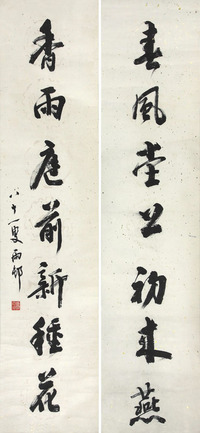 春風堂上初來燕
香雨庭前新種花
八十一叟雨邨